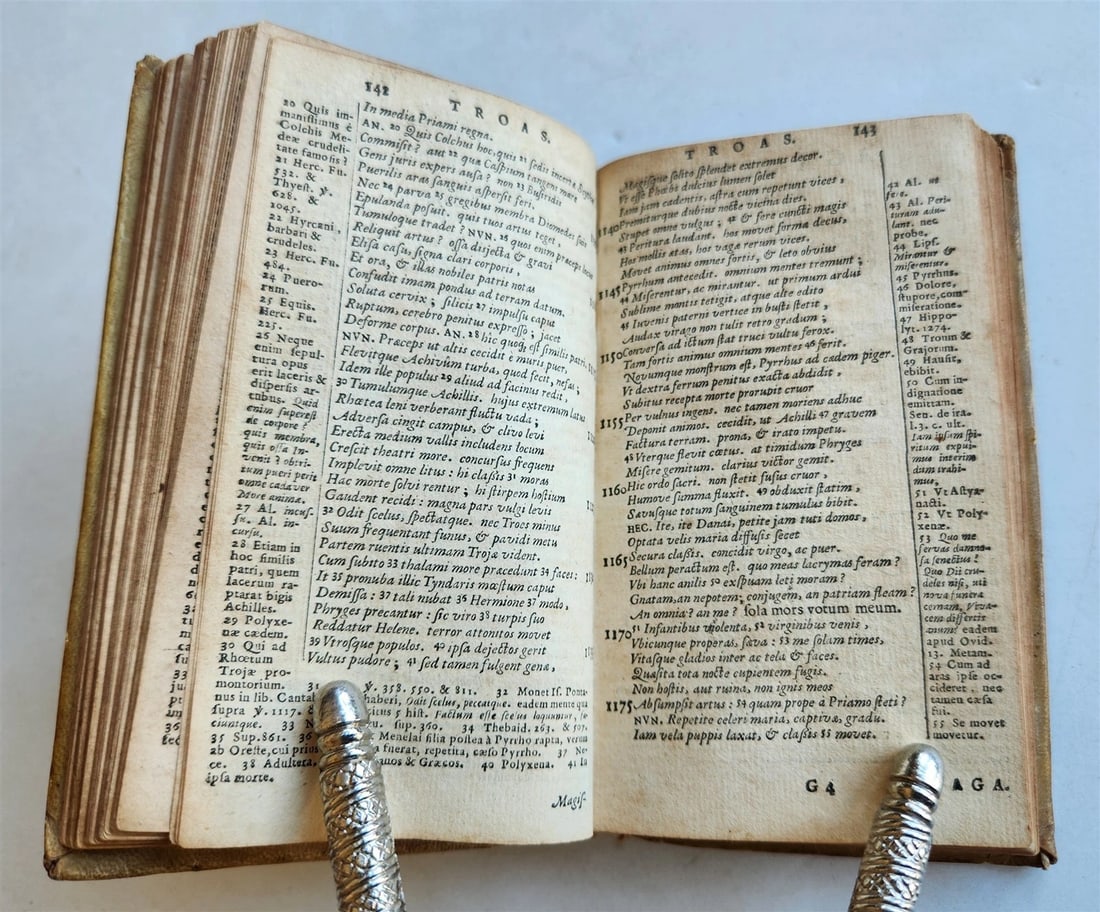 142
TROAS.
20 Quis im-
manissimus è
Colchis Me-
deæ crudeli-
tate famosis?
21 Herc. Fu.
532. &
Thyest. ℣.
628. &
1045.
22 Hyrcani,
barbari &
crudeles.
23 Herc. Fu.
484.
24 Puero-
rum.
25 Equis.
Herc. Fu.
225.
26 Neque
enim sepul-
tura opus
erit laceris &
dispersis ar-
tubus. Quid
enim superest
de corpore?
quis membra,
quis ossa In-
venit? obtri-
tum pueri perit
omne cadaver
More animæ.
27 Al. incus-
su. Al. in-
cursu.
28 Etiam in
hoc similis
patri, quem
lacerum ra-
ptarat bigis
Achilles.
29 Polyxe-
næ cædem.
30 Qui ad
Rhœtum
Trojæ pro-
montorium.
In media Priami regna.
AN. 20 Quis Colchus hoc, quis 21 sedis incertæ Scytha
Commisit? aut 22 quæ Caspium tangens mare
Gens juris expers ausa? non 23 Busiridis
Puerilis aras sanguis aspersit feri.
Nec 24 parva 25 gregibus membra Diomedes suis
Epulanda posuit. quis tuos artus teget,
Tumuloque tradet? NVN. 26 quos enim præceps locus
Reliquit artus? ossa disjecta & gravi
Elisa casu, signa clari corporis,
Et ora, & illas nobiles patris notas
Confudit imam pondus ad terram datum.
Soluta cervix; silicis 27 impulsu caput
Ruptum, cerebro penitus expresso; jacet
Deforme corpus. AN. 28 hic quoq; est similis patri.
NVN. Præceps ut altis cecidit è muris puer,
Flevitque Achivûm turba, quod fecit, nefas;
Idem ille populus 29 aliud ad facinus redit,
30 Tumulumque Achillis. hujus extremum latus
Rhœtea leni verberant fluctu vada;
Adversa cingit campus, & clivo levi
Erecta medium vallis includens locum
Crescit theatri more. concursus frequens
Implevit omne litus: hi classis 31 moras
Hac morte solvi rentur; hi stirpem hostium
Gaudent recidi: magna pars vulgi levis
32 Odit scelus, spectatque. nec Troes minus
Suum frequentant funus, & pavidi metu
Partem ruentis ultimam Trojæ vident.
Cum subito 33 thalami more præcedunt 34 faces:
It 35 pronuba illic Tyndaris mæstum caput
Demissa: 37 tali nubat 36 Hermione 37 modo,
Phryges precantur: sic viro 38 turpis suo
Reddatur Helene. terror attonitos movet
39 Vtrosque populos. 40 ipsa dejectos gerit
Vultus pudore; 41 sed tamen fulgent genæ,
31 ℣. 358. 550. & 811. 32 Monet Is. Ponta-
nus in lib. Cantab haberi, Odit scelus, peccatque. eadem mente qua
supra ℣. 1117. & citus 5 hist. Factum esse scelus loquuntur, fa-
ciuntque. 33 N sup. 360. 34 Thebaid. 263. & 507.
35 Sup. 861. 36 Menelai filia pollea à Pyrrho rapta, verum
ab Oreste, cui prius fuerat, repetita, cæso Pyrrho. 37 Ne-
ce. 38 Adultera. anos & Græcos. 40 Polyxena. 41 In
ipsa morte.
Magis-
TROAS.
143
Magisque solito splendet extremus decor.
Vt esse Phœbi dulcius lumen solet
Iam jam cadentis, astra cum repetunt vices,
1140 Premiturque dubius nocte vicina dies.
Stupet omne vulgus; 42 & fere cuncti magis
43 Peritura laudant. hos movet forma decus,
Hos mollis ætas, hos vagæ rerum vices.
Movet animus omnes fortis, & leto obvius
1145 Pyrrhum antecedit. omnium mentes tremunt;
44 Miserentur, ac mirantur. ut primum ardui
Sublime montis tetigit, atque alte edito
45 Iuvenis paterni vertice in busti stetit,
Audax virago non tulit retro gradum;
1150 Conversa ad ictum stat truci vultu ferox.
Tam fortis animus omnium mentes 46 ferit.
Novumque monstrum est, Pyrrhus ad cædem piger.
Vt dextra ferrum penitus exacta abdidit,
Subitus recepta morte prorupit cruor
1155 Per vulnus ingens. nec tamen moriens adhuc
Deponit animos. cecidit, ut Achilli 47 gravem
Factura terram. prona, & irato impetu.
48 Vterque flevit cœtus. at timidum Phryges
Misere gemitum. clarius victor gemit.
1160 Hic ordo sacri. non stetit fusus cruor,
Humove summa fluxit. 49 obduxit statim,
Savusque totum sanguinem tumulus bibit.
HEC. Ite, ite Danai, petite jam tuti domos,
Optata velis maria diffusis secet
1165 Secura classis. concidit virgo, ac puer.
Bellum peractum est. quo meas lacrymas feram?
Vbi hanc anilis 50 exspuam leti moram?
Gnatam, an nepotem; conjugem, an patriam fleam?
An omnia? an me? sola mors votum meum.
1170 51 Infantibus violenta, 52 virginibus venis,
Vbicunque properas, sæva: 53 me solam times,
Vitasque gladios inter ac tela & faces.
Quæsita tota nocte cupientem fugis.
Non hostis, aut ruina, non ignis meos
1175 Absumpsit artus: 54 quam prope à Priamo steti?
NVN. Repetite celeri maria, captivæ, gradu.
Iam vela puppis laxat, & classis 55 movet.
42 Al. ut
fere.
43 Al. Peri-
turam adu-
lant. nec
probe.
44 Lips.
Mirantur &
miserentur.
45 Pyrrhus.
46 Dolore,
stupore, com-
miseratione.
47 Hippo-
lyt. 1274.
48 Troum &
Grajorum.
49 Hausit,
ebibit.
50 Cum in-
dignatione
emittam.
Sen. de ira.
l. 3. c. ult.
Iam ipsam spi-
ritum expui-
mus interim
dum trahi-
mus.
51 Vt Astya-
nacti.
52 Vt Poly-
xenæ.
53 Quo me
servas damno-
sa senectus?
Quo Dii cru-
deles nisi, uti
nova funera
cernam, Viva-
cem differtis
anum? eadem
apud Ovid.
13. Metam.
54 Cum ad
aras ipse oc-
cideret, nec
tamen cæsa
fui.
55 Se movet
movetur.
G4
AGA.